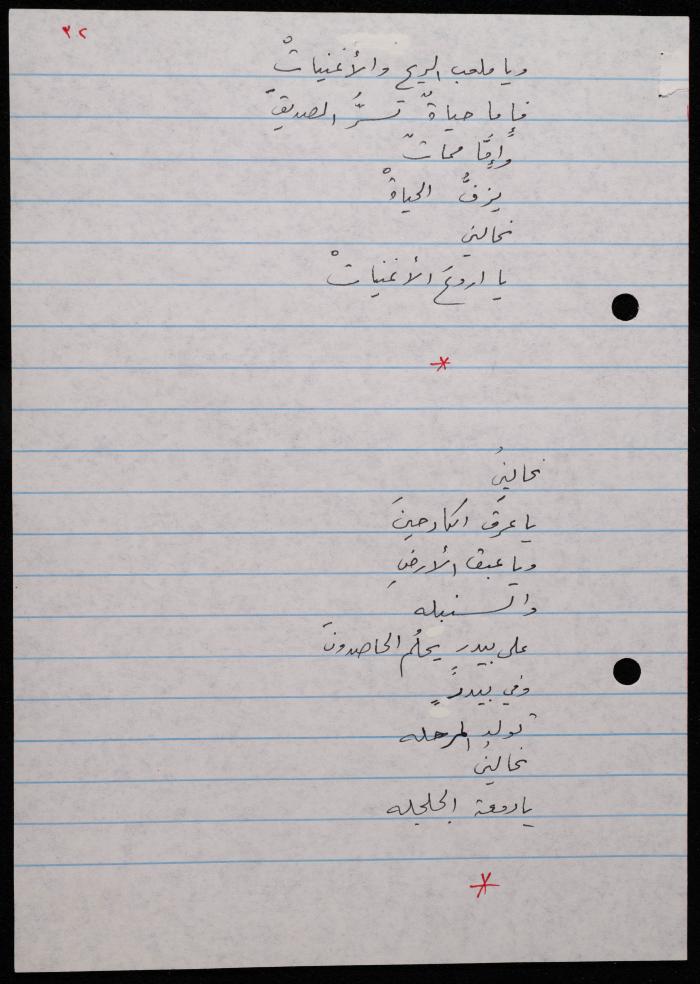 ٣٢
ويا ملعب الريح والأغنياتْ
فإما حياةٌ تسرُّ الصديقَ
وإمَّا مماتٌ
يزفُّ الحياةْ
نحالين
يا اروعَ الأغنياتْ
*
نحالينُ
يا عرقَ الكادحينَ
ويا عبق الأرضِ
والسنبله
على بيدرٍ يحلُم الحاصدونَ
وفي بيدرٍ
تولد المرحله
نحالينُ
يا روعة الجلجله
*